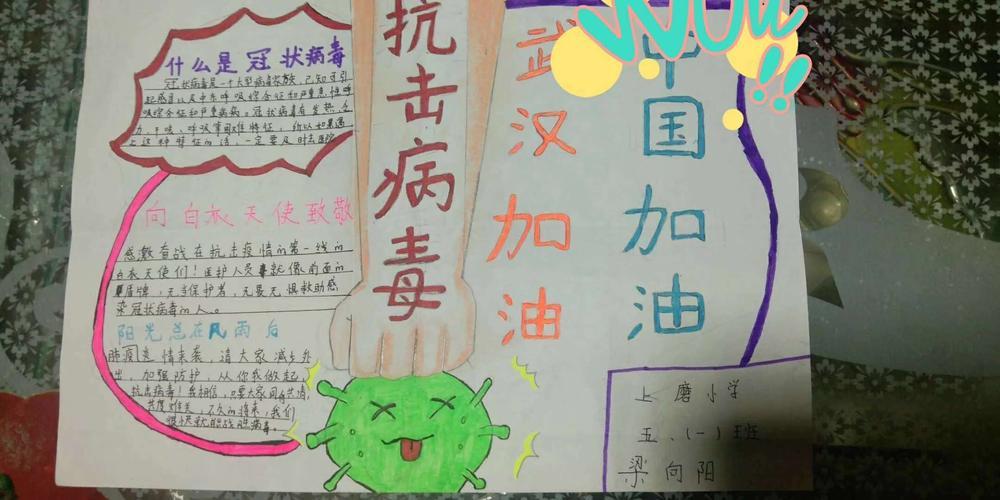 什么是冠状病毒
冠状病毒是一个大型病毒家族，已知可引
起感冒以及中东呼吸综合征和严重急性呼
吸综合征和严重疾病。冠状病毒有发热、乏
力、干咳、呼吸等困难特征，所以如果遇
上这种特征的话，一定要及时去医院
向白衣天使致敬
感激奋战在抗击疫情的第一线的
白衣天使们！医护人员就像前面的
盾牌，充当保护者，无畏无惧救助感
染冠状病毒的人。
阳光总在风雨后
肺炎疫情来袭，请大家减少外
出，加强防护，从你我做起，
抗击病毒！我相信，只要大家同舟共济，
共度难关，不久的将来，我们
很快就能战胜病毒。
抗击病毒
武汉加油
中国加油
WOW!!
上磨小学
五、(一)班
梁向阳